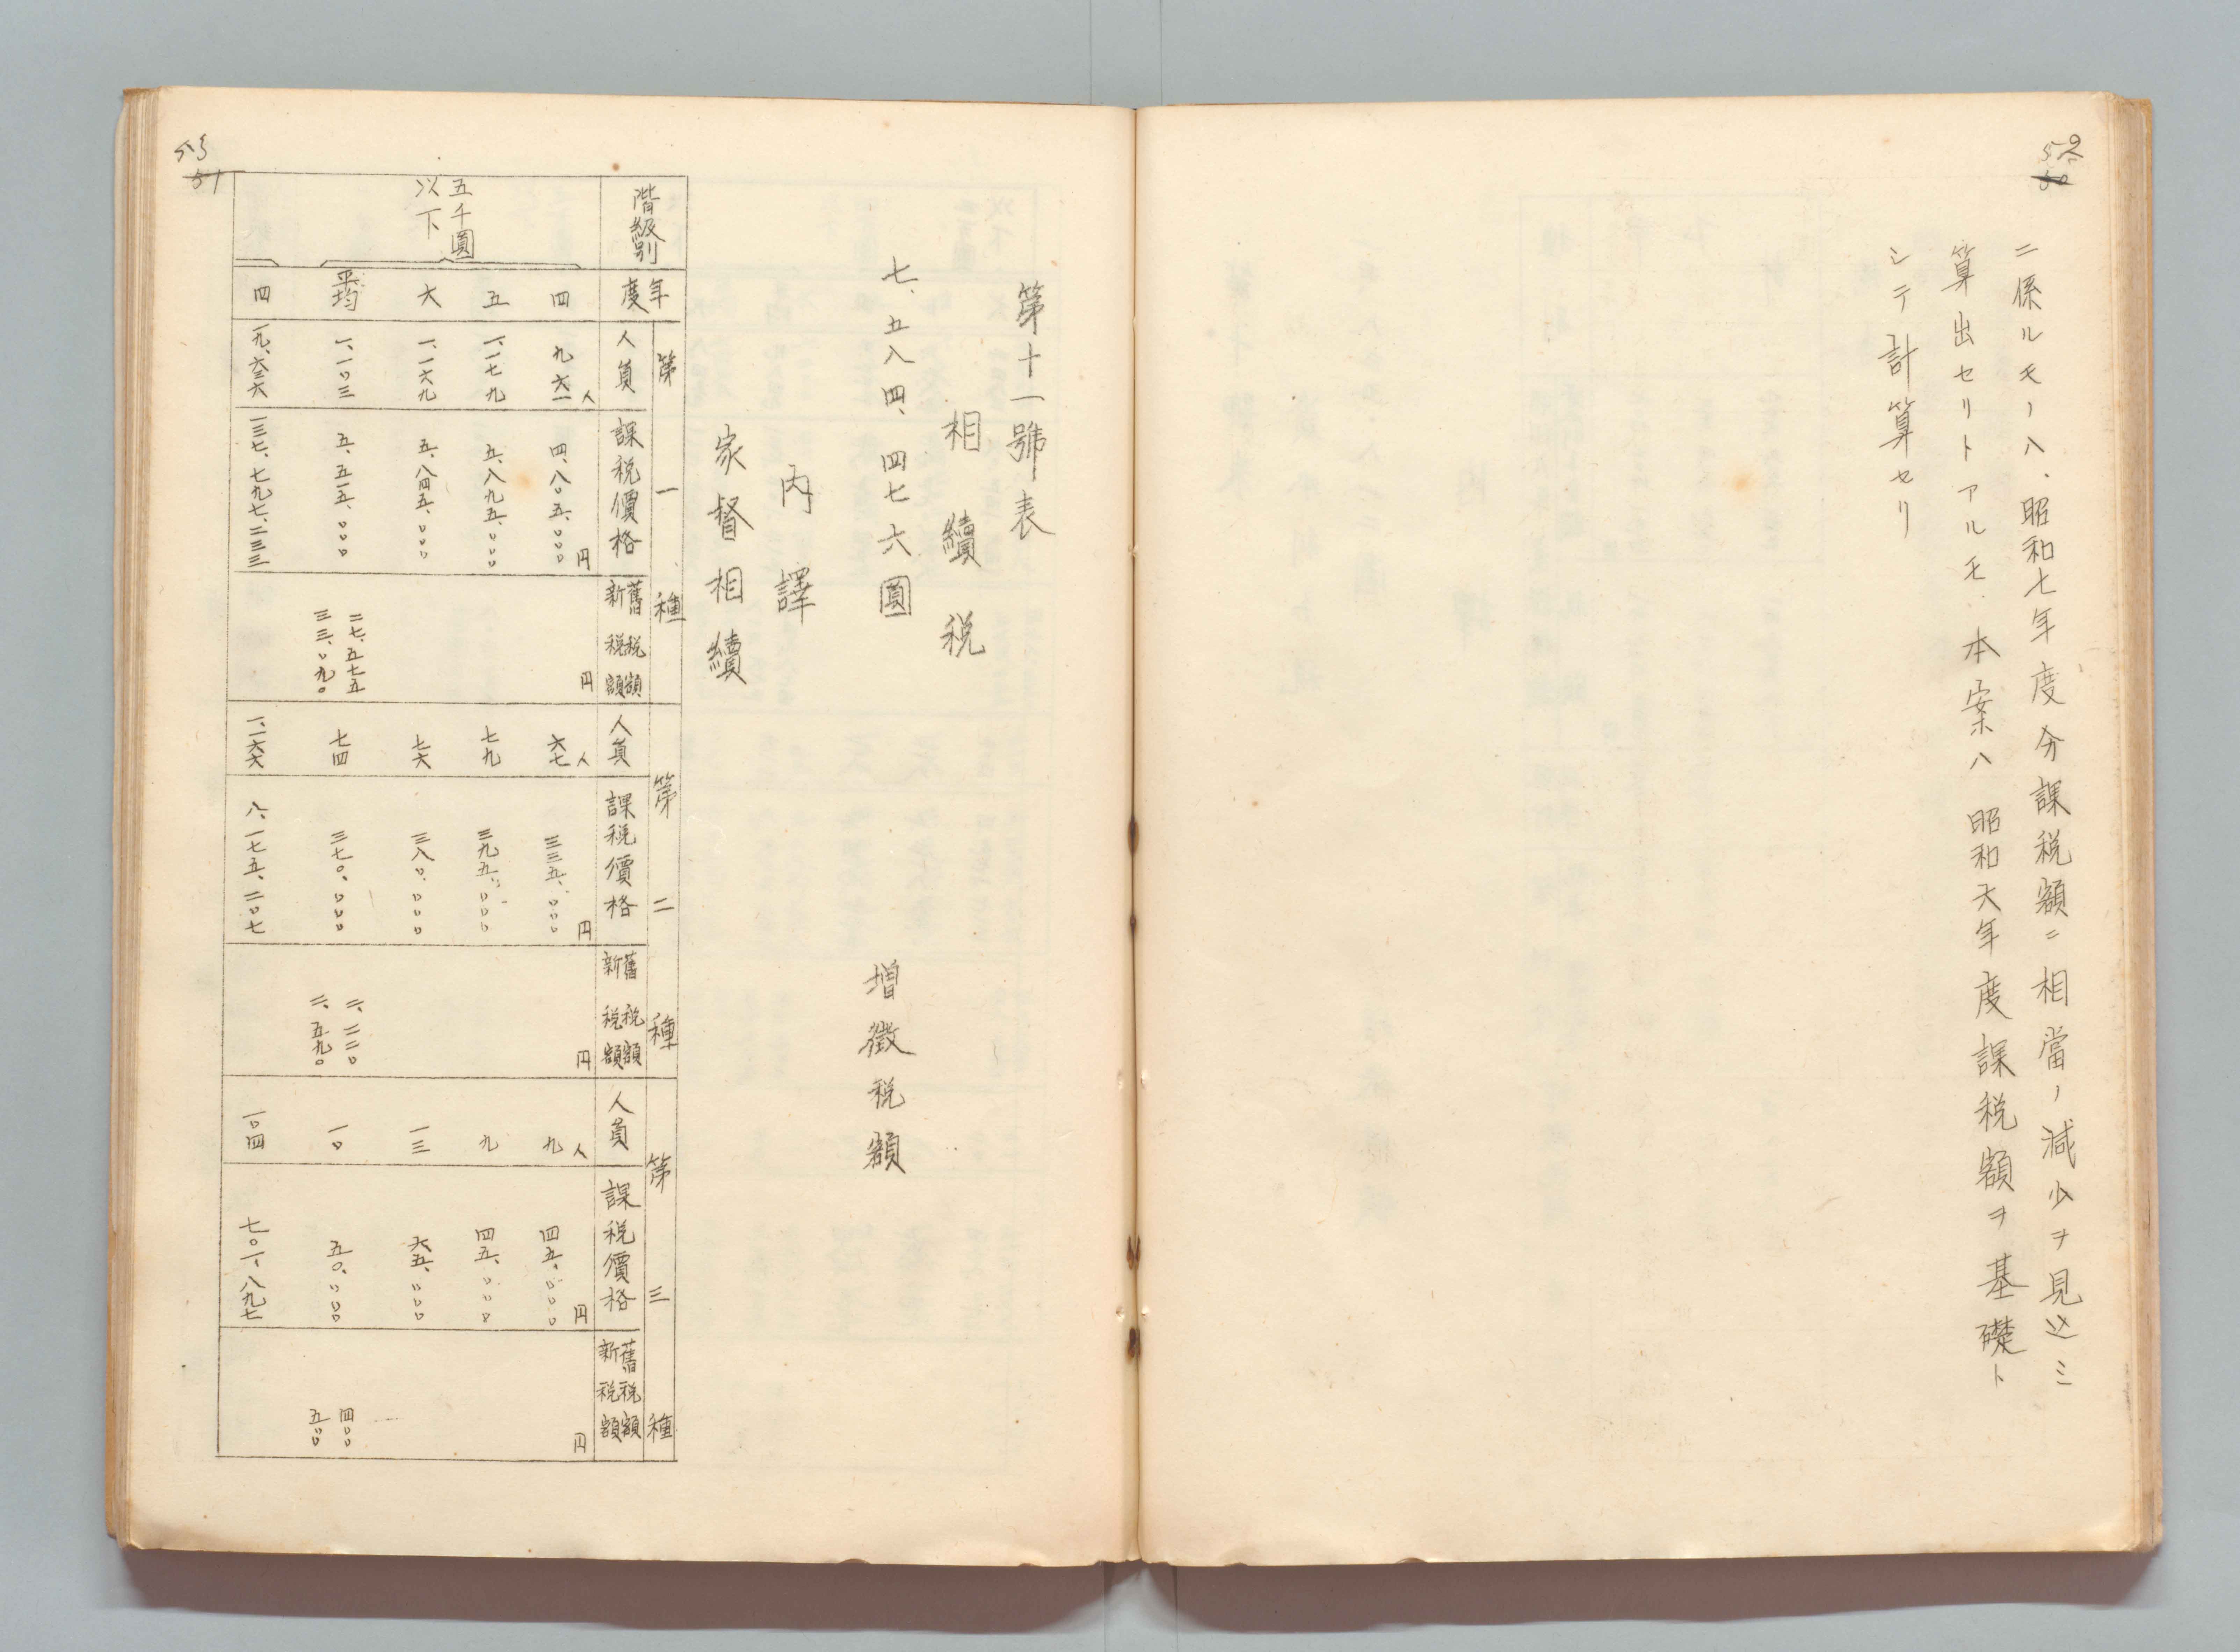 52
50
ニ係ルモノハ、昭和七年度分課税額ニ相當ノ減少ヲ見込ミ
算出セリトアルモ、本案ハ昭和六年度課税額ヲ基礎ト
シテ計算セリ
53
51
第十一號表
相續税
七、五八四、四七六圓 増徴税額
内譯
家督相續
階級別 年度 第一種 第二種 第三種
人員 課税價格 舊税額 新税額 人員 課税價格 舊税額 新税額 人員 課税價格 舊税額 新税額
五千圓以下
四 九六一人 四、八〇五、〇〇〇円 円 六七人 三三五、〇〇〇円 円 九人 四五、〇〇〇円 円
五 一、一七九 五、八九五、〇〇〇 七九 三九五、〇〇〇 九 四五、〇〇〇
六 一、一六九 五、八四五、〇〇〇 七六 三八〇、〇〇〇 一三 六五、〇〇〇
平均 一、一〇三 五、五一五、〇〇〇 二七、五七五 三三、〇九〇 七四 三七〇、〇〇〇 二、二二〇 二、五九〇 一〇 五〇、〇〇〇 四〇〇 五〇〇
四 一九、六三六 一三七、七九七、二三三 一、一六六 八、一七五、二〇七 一〇四 七〇一、八九七